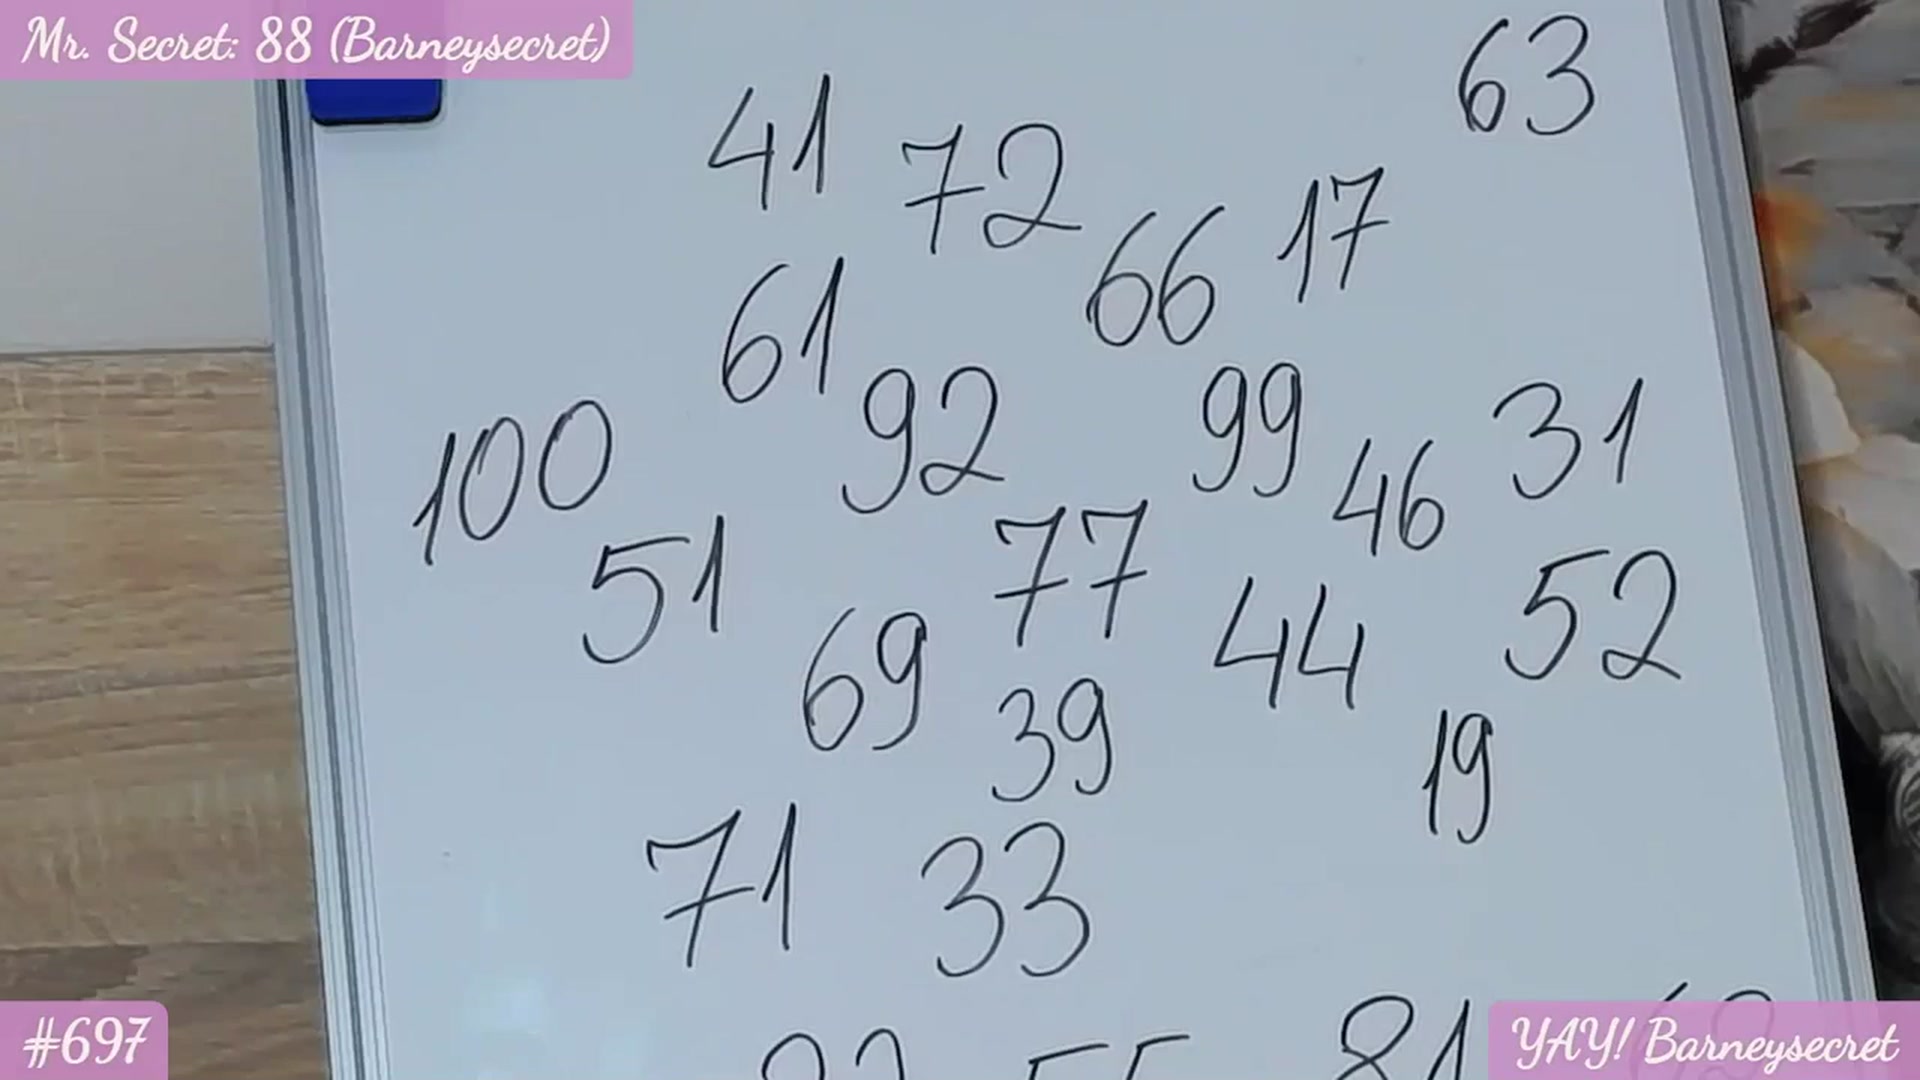 Mr. Secret: 88 (Barneysecret)
63
41 72
66 17
61
92 99 31
100 46
51 77
44 52
69 39
19
71 33
81
#697
YAY! Barneysecret